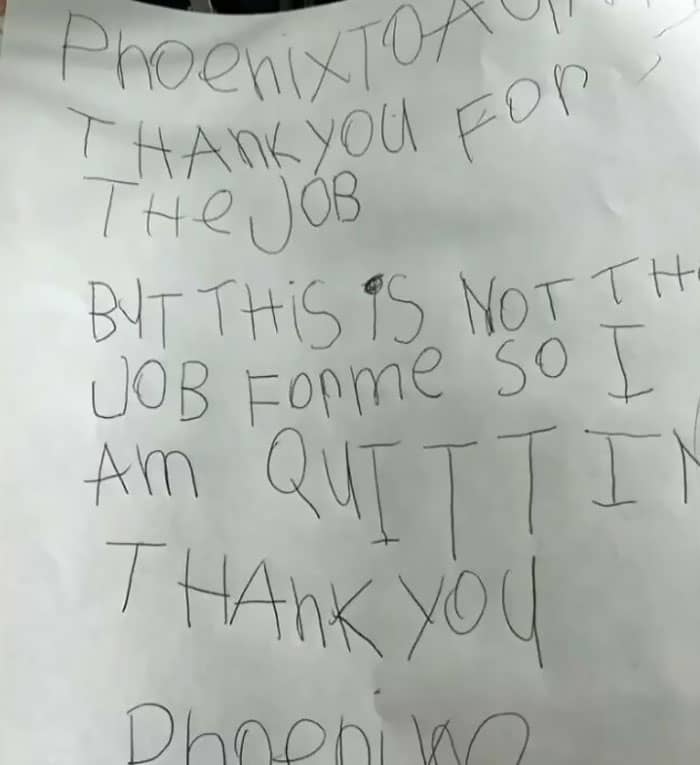 PhoenixTOA
THANKYOU FOR
THe JOB
BUT THiS iS NOT TH
JOB FORme SO I
Am QUITTIN
THAnK YOU
Phoenix